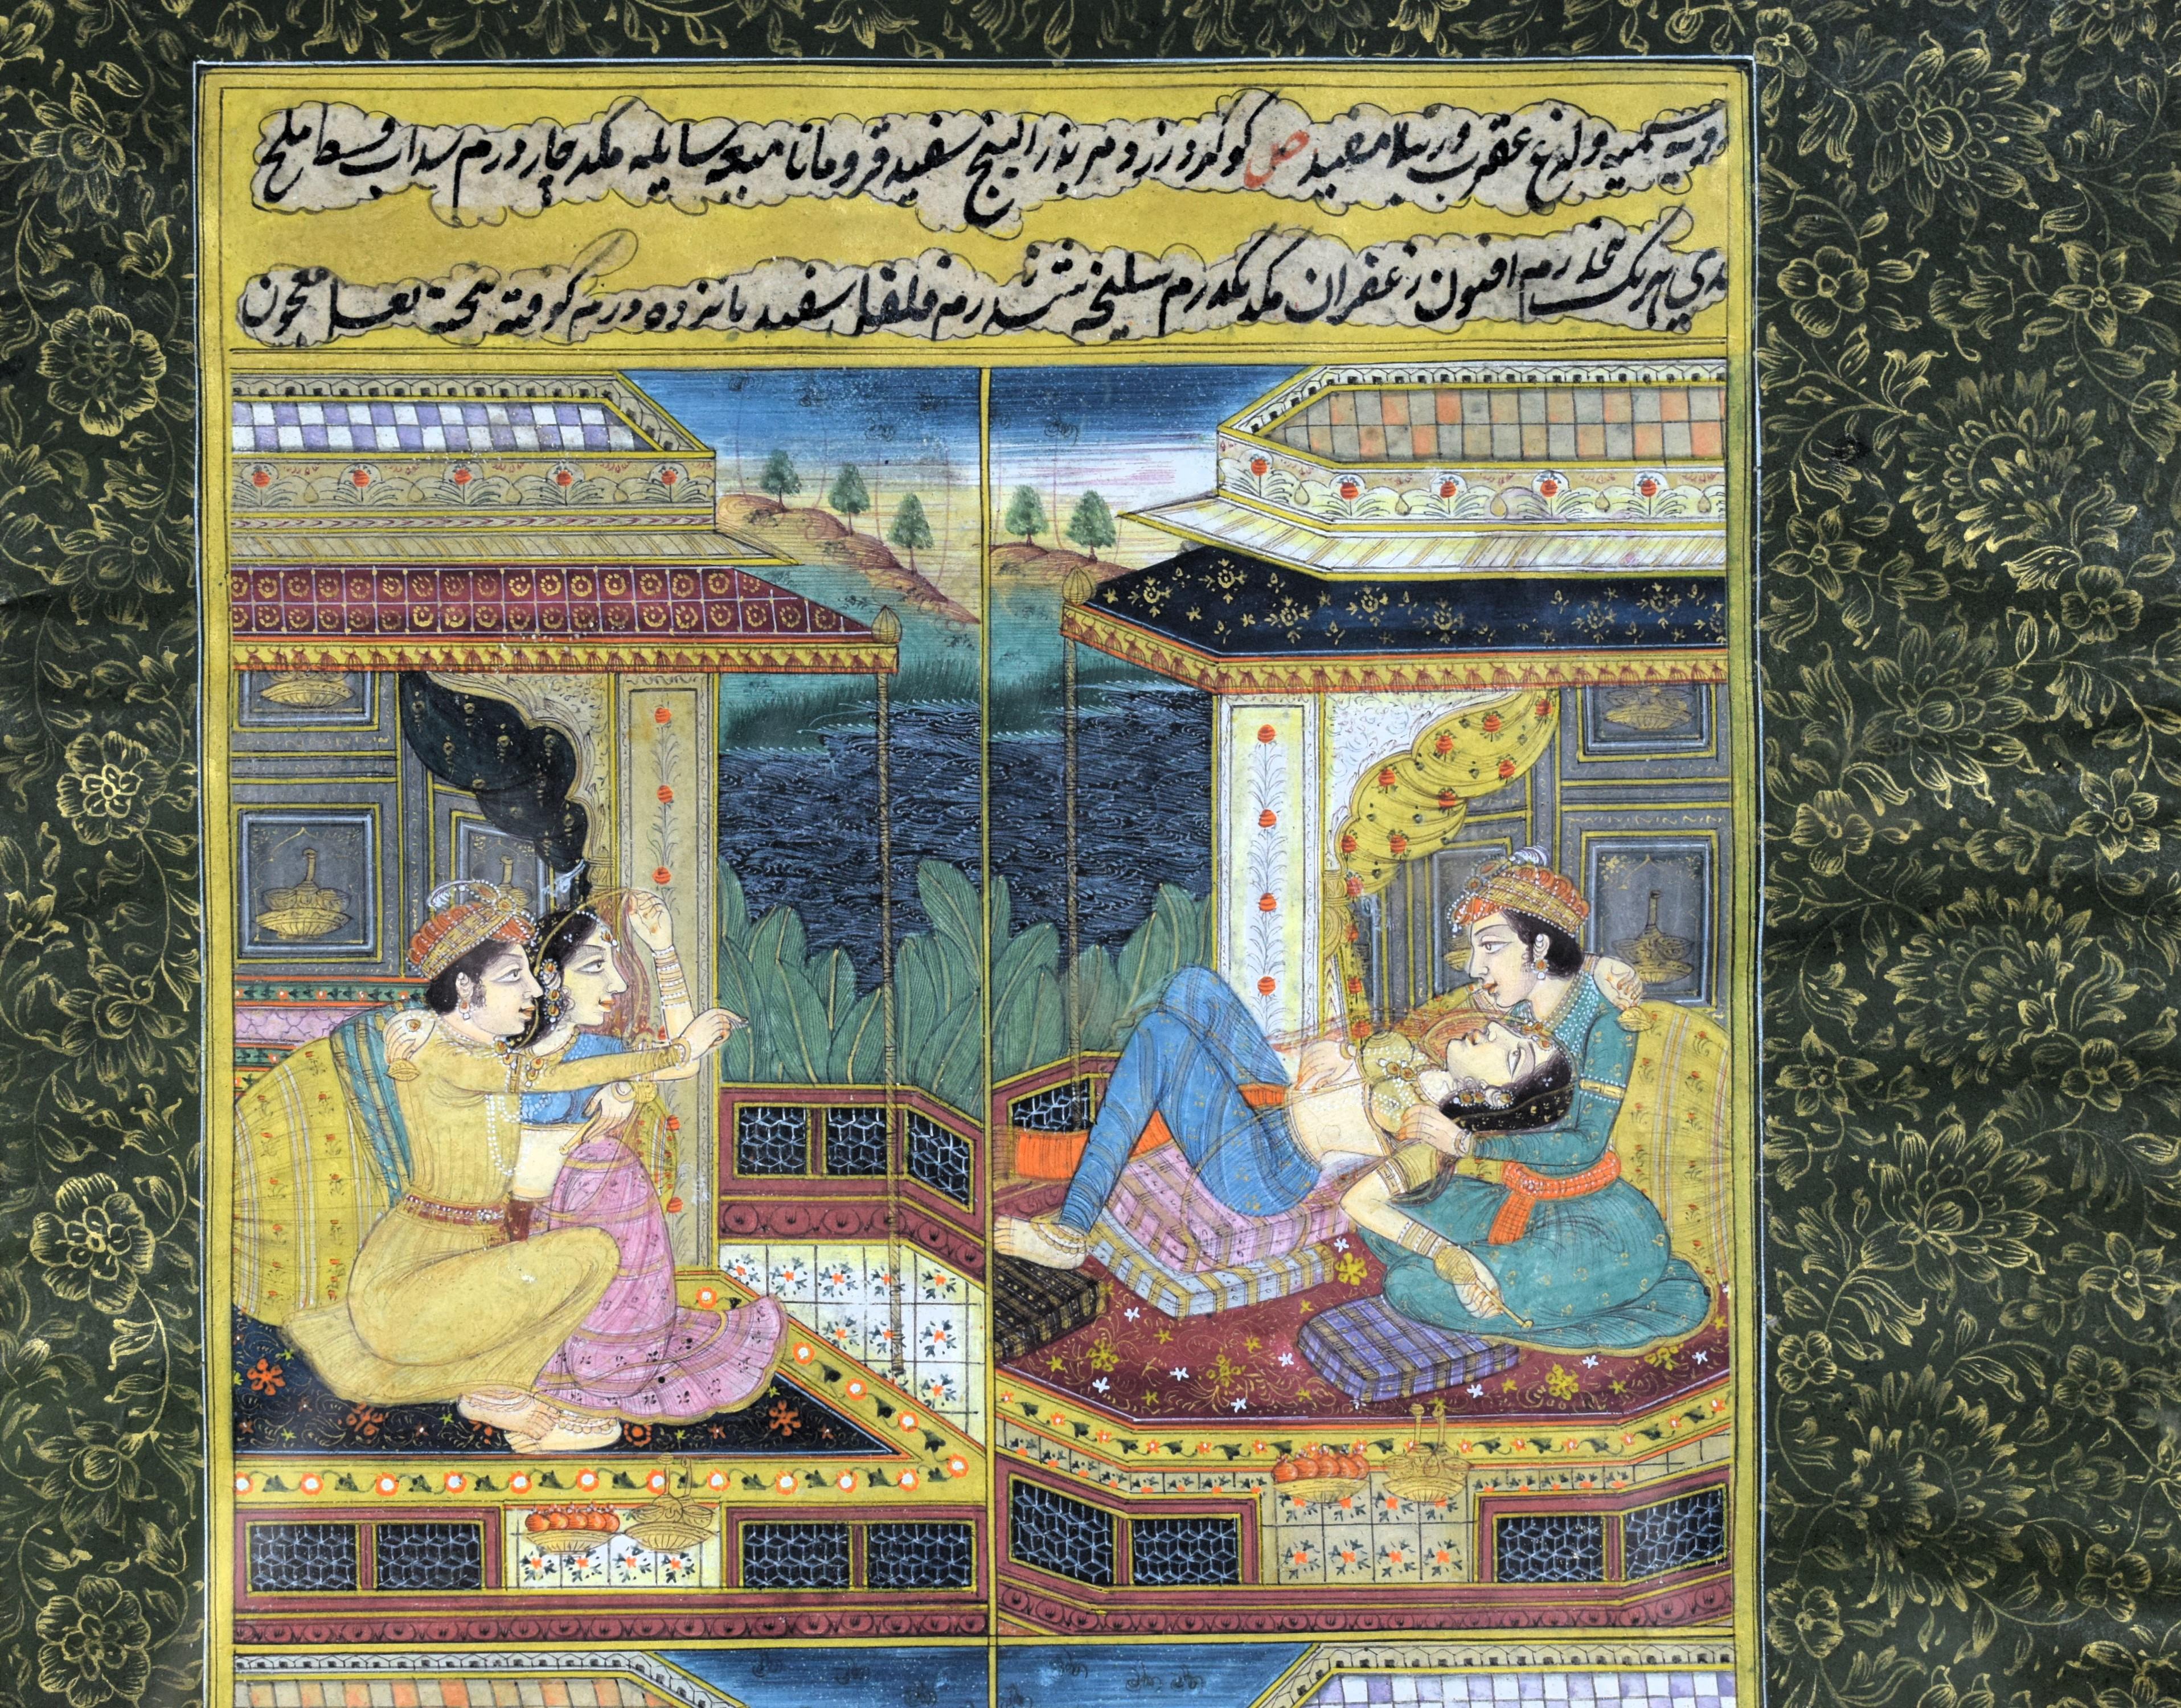 ولدغ عقرب و رتیلا مفید ص کوکرد زرد و مر بزرالبنج سفید قردمانا میعه سایله مکد چار درم سداب قسط ملح
هریک پنجدرم افیون زعفران مکد یکدرم سلیخه ششدرم فلفل سفید پانزده درم کوفته پخته بعسل معجون